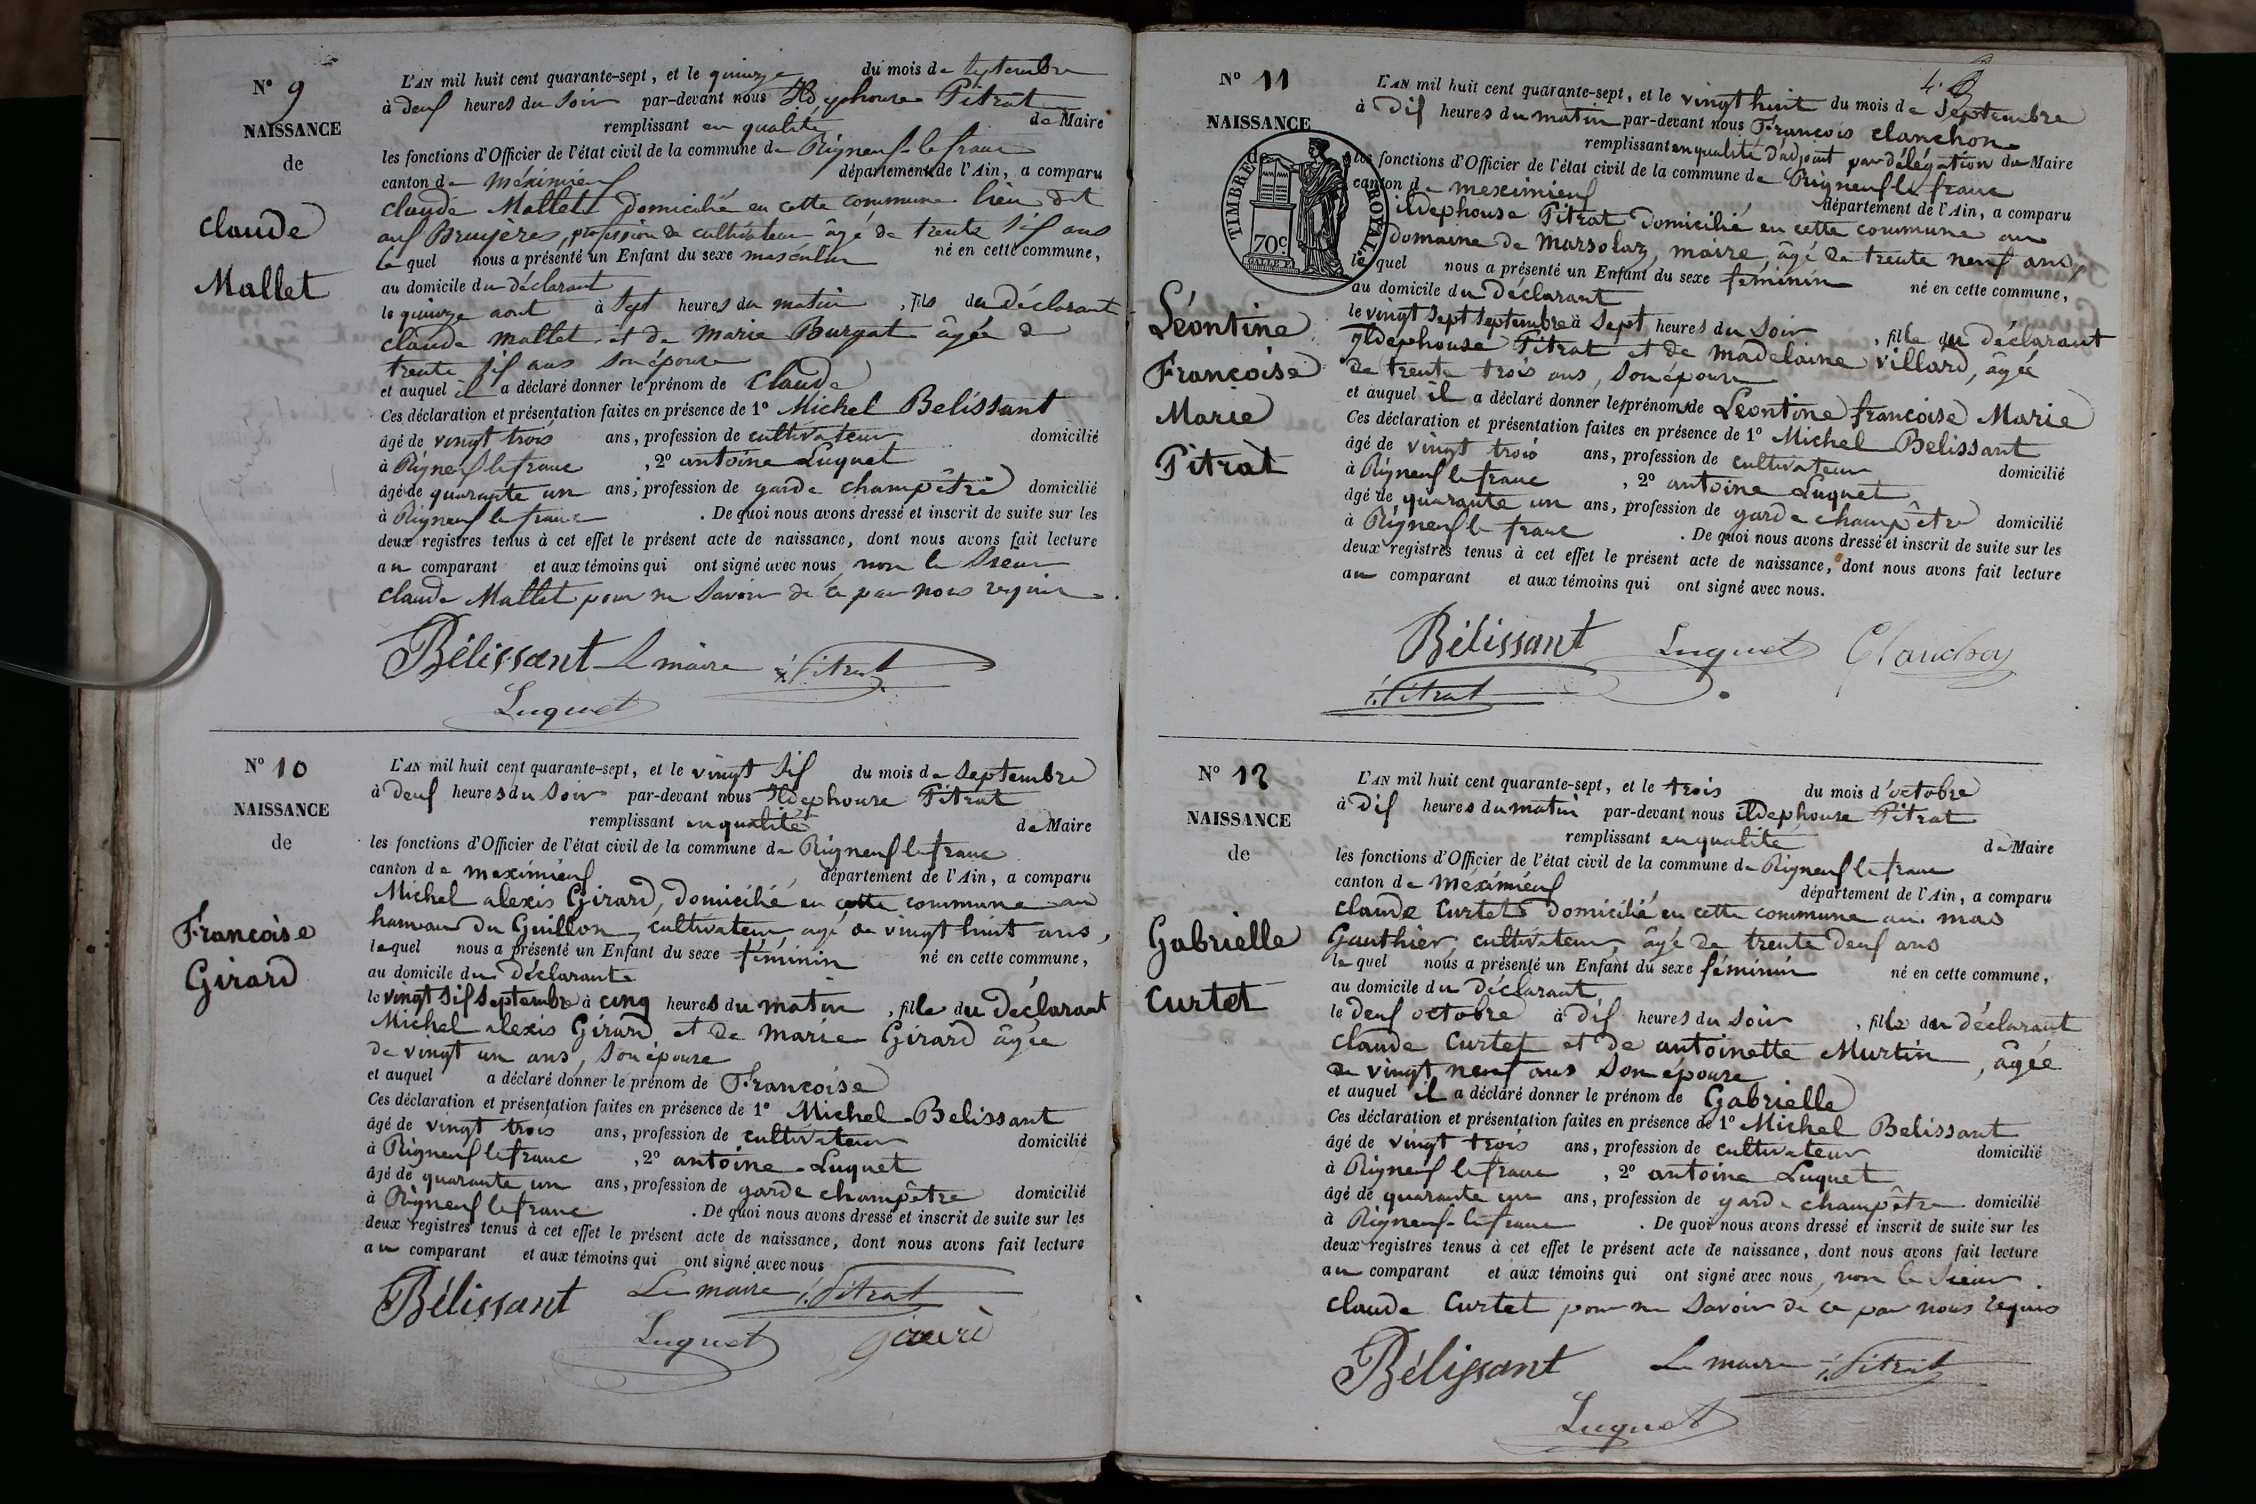 N° 9
NAISSANCE
de
Claude
Mallet
L'AN mil huit cent quarante-sept, et le quinze du mois de septembre
à deux heures du soir par-devant nous Ildephonse Pitrat
remplissant en qualité de Maire
les fonctions d'Officier de l'état civil de la commune de Rigneux le franc
canton de méximieux département de l'Ain, a comparu
claude Mallet domicilié en cette commune lieu dit
aux Bruyères, profession de cultivateur âgé de trente six ans
lequel nous a présenté un Enfant du sexe masculin né en cette commune,
au domicile du déclarant
le quinze aout à sept heures du matin, fils du déclarant
claude mallet et de marie Burgat âgée de
trente six ans son épouse
et auquel il a déclaré donner le prénom de Claude
Ces déclaration et présentation faites en présence de 1° Michel Belissant
âgé de vingt trois ans, profession de cultivateur domicilié
à Rigneux le franc, 2° antoine Luquet
âgé de quarante un ans, profession de garde champêtre domicilié
à Rigneux le franc. De quoi nous avons dressé et inscrit de suite sur les
deux registres tenus à cet effet le présent acte de naissance, dont nous avons fait lecture
au comparant et aux témoins qui ont signé avec nous, non le sieur
claude Mallet pour ne savoir de ce par nous requis.
Bélissant Le maire i. Pitrat
Luquet
N° 10
NAISSANCE
de
Françoise
Girard
L'AN mil huit cent quarante-sept, et le vingt six du mois de septembre
à deux heures du soir par-devant nous Ildephonse Pitrat
remplissant en qualité de Maire
les fonctions d'Officier de l'état civil de la commune de Rigneux le franc
canton de meximieux département de l'Ain, a comparu
Michel alexis Girard, domicilié en cette commune au
hameau du Guillon, cultivateur agé de vingt huit ans,
lequel nous a présenté un Enfant du sexe féminin né en cette commune,
au domicile du déclarant
le vingt six septembre à cinq heures du matin, fille du déclarant
Michel alexis Girard et de marie Girard âgée
de vingt un ans, son épouse
et auquel a déclaré donner le prénom de Françoise
Ces déclaration et présentation faites en présence de 1° Michel Belissant
âgé de vingt trois ans, profession de cultivateur domicilié
à Rigneux le franc, 2° antoine Luquet
âgé de quarante un ans, profession de garde champêtre domicilié
à Rigneux le franc. De quoi nous avons dressé et inscrit de suite sur les
deux registres tenus à cet effet le présent acte de naissance, dont nous avons fait lecture
au comparant et aux témoins qui ont signé avec nous
Bélissant Le maire i. Pitrat
Luquet
N° 11
NAISSANCE
de
TIMBRE ROYAL
70c
Léontine
Françoise
Marie
Pitrat
L'AN mil huit cent quarante-sept, et le vingt huit du mois de septembre
à dix heures du matin par-devant nous François clanchon
remplissant en qualité d'adjoint par délégation du Maire
les fonctions d'Officier de l'état civil de la commune de Rigneux le franc
canton de meximieux département de l'Ain, a comparu
ildephonse Pitrat domicilié en cette commune au
domaine de marsolaz, maire, âgé de trente neuf ans,
lequel nous a présenté un Enfant du sexe féminin né en cette commune,
au domicile du déclarant
le vingt sept septembre à sept heures du soir, fille du déclarant
Ildephonse Pitrat et de madelaine villard, âgée
de trente trois ans, son épouse
et auquel il a déclaré donner les prénoms de Léontine françoise Marie
Ces déclaration et présentation faites en présence de 1° Michel Belissant
âgé de vingt trois ans, profession de cultivateur domicilié
à Rigneux le franc, 2° antoine Luquet
âgé de quarante un ans, profession de garde champêtre domicilié
à Rigneux le franc. De quoi nous avons dressé et inscrit de suite sur les
deux registres tenus à cet effet le présent acte de naissance, dont nous avons fait lecture
au comparant et aux témoins qui ont signé avec nous.
Bélissant Luquet Clanchon
i. Pitrat
N° 12
NAISSANCE
de
Gabrielle
Curtet
L'AN mil huit cent quarante-sept, et le trois du mois d'octobre
à dix heures du matin par-devant nous ildephonse Pitrat
remplissant en qualité de Maire
les fonctions d'Officier de l'état civil de la commune de Rigneux le franc
canton de méximieux département de l'Ain, a comparu
claude Curtet domicilié en cette commune au mas
Gauthier, cultivateur, âgé de trente deux ans
lequel nous a présenté un Enfant du sexe féminin né en cette commune,
au domicile du déclarant
le deux octobre à dix heures du soir, fille du déclarant
claude Curtet et de antoinette Murtin, âgée
de vingt neuf ans son épouse
et auquel il a déclaré donner le prénom de Gabrielle
Ces déclaration et présentation faites en présence de 1° Michel Belissant
âgé de vingt trois ans, profession de cultivateur domicilié
à Rigneux le franc, 2° antoine Luquet
âgé de quarante un ans, profession de garde champêtre domicilié
à Rigneux le franc. De quoi nous avons dressé et inscrit de suite sur les
deux registres tenus à cet effet le présent acte de naissance, dont nous avons fait lecture
au comparant et aux témoins qui ont signé avec nous, non le sieur
claude Curtet pour ne savoir de ce par nous requis
Bélissant Le maire i. Pitrat
Luquet